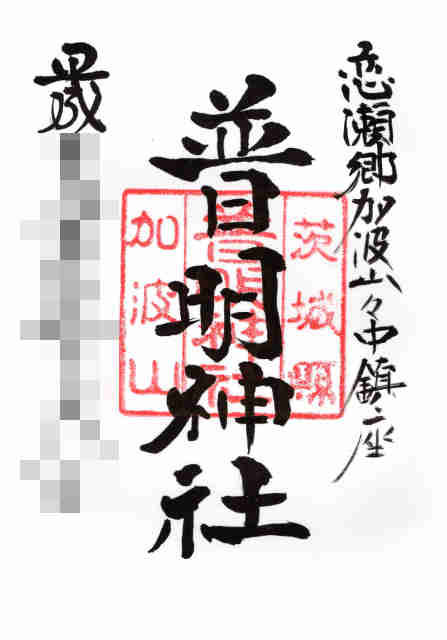 恋瀬郷加波山々中鎮座
普明神社
茨城縣
普明神社
加波山
歳